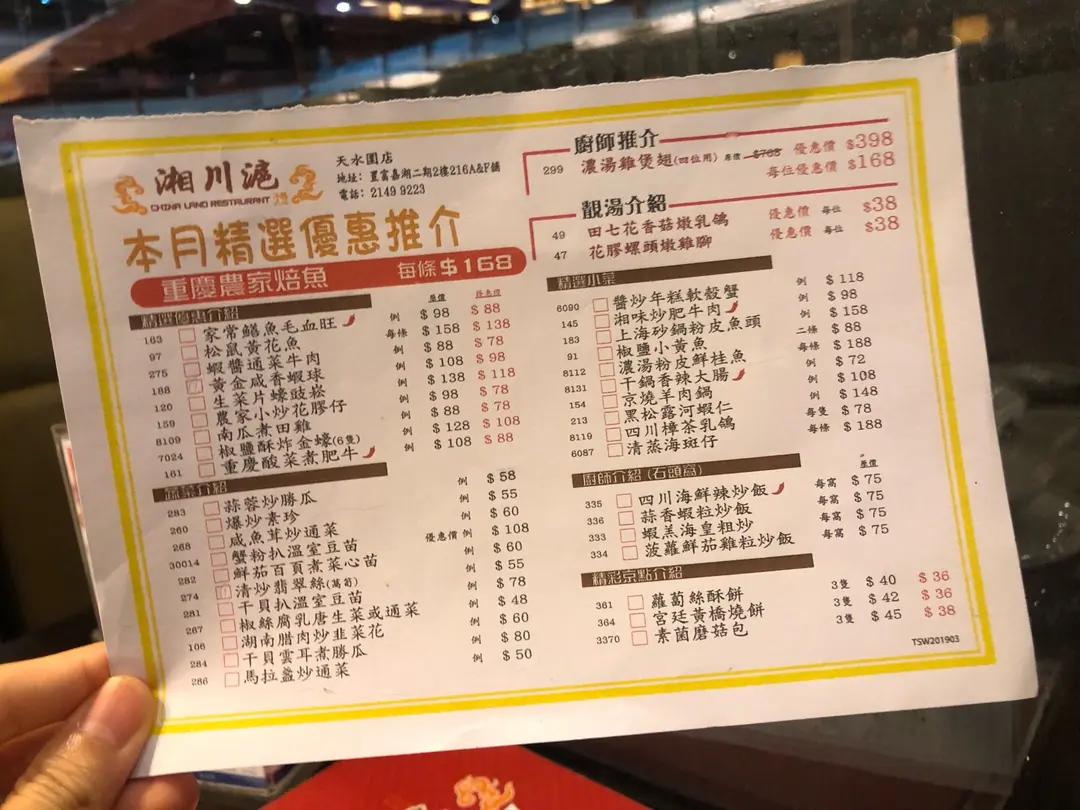 湘川滬
CHINA LAND RESTAURANT
天水圍店
地址: 置富嘉湖二期2樓216A&F舖
電話: 2149 9223
本月精選優惠推介
重慶農家焙魚 每條$168
精選優惠介紹 原價 優惠價
163 家常鱔魚毛血旺 例 $98 $88
97 松鼠黃花魚 每條 $158 $138
275 蝦醬通菜牛肉 例 $88 $78
188 黃金咸香蝦球 例 $108 $98
120 生菜片蠔豉崧 例 $138 $118
159 農家小炒花膠仔 例 $98 $78
8109 南瓜煮田雞 例 $88 $78
7024 椒鹽酥炸金蠔(6隻) 例 $128 $108
161 重慶酸菜煮肥牛 例 $108 $88
蔬菜介紹
283 蒜蓉炒勝瓜 例 $58
260 爆炒素珍 例 $55
268 咸魚茸炒通菜 例 $60
30014 蟹粉扒溫室豆苗 優惠價 例 $108
282 鮮茄百頁煮菜心苗 例 $60
274 清炒翡翠絲(萵筍) 例 $55
281 干貝扒溫室豆苗 例 $78
267 椒絲腐乳唐生菜或通菜 例 $48
106 湖南腊肉炒韭菜花 例 $60
284 干貝雲耳煮勝瓜 例 $80
286 馬拉盞炒通菜 例 $50
廚師推介
299 濃湯雞煲翅(四位用) 原價 $768 優惠價 $398
每位優惠價 $168
靚湯介紹
49 田七花香菇燉乳鴿 優惠價 每位 $38
47 花膠螺頭燉雞腳 優惠價 每位 $38
精選小菜
6090 醬炒年糕軟殼蟹 例 $118
145 湘味炒肥牛肉 例 $98
183 上海砂鍋粉皮魚頭 例 $158
91 椒鹽小黃魚 二條 $88
8112 濃湯粉皮鮮桂魚 每條 $188
8131 干鍋香辣大腸 例 $72
154 京燒羊肉鍋 例 $108
213 黑松露河蝦仁 例 $148
8119 四川樟茶乳鴿 每隻 $78
6087 清蒸海斑仔 每條 $188
廚師介紹 (石頭窩) 原價
335 四川海鮮辣炒飯 每窩 $75
336 蒜香蝦粒炒飯 每窩 $75
333 蝦羔海皇粗炒 每窩 $75
334 菠蘿鮮茄雞粒炒飯 每窩 $75
精彩京點介紹
361 蘿蔔絲酥餅 3隻 $40 $36
364 宮廷黃橋燒餅 3隻 $42 $36
3370 素菌磨菇包 3隻 $45 $38
TSW201903